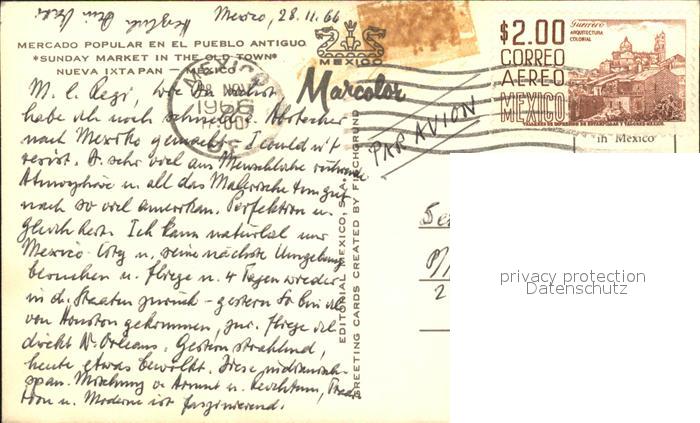 Mexico, 28.11.66
MERCADO POPULAR EN EL PUEBLO ANTIGUO
*SUNDAY MARKET IN THE OLD TOWN*
NUEVA IXTAPAN — MEXICO
MEXICO
Marcolor
MEXICO
1966
PAR AVION
$2.00
CORREO
AEREO
MEXICO
Guerrero
ARQUITECTURA
COLONIAL
in Mexico
EDITORIAL MEXICO, S.A.
GREETING CARDS CREATED BY FISCHGRUND
M. l. Regi, wie Du siehst
habe ich noch schnell e. Abstecher
nach Mexiko gemacht, I couldn't
resist. D. sehr viel am Menschliche
Atmosphäre u. all das Malerische
nach so viel amerikan. Perfektion u.
gleichheit. Ich kann natürlich nur
Mexico City u. seine nächste Umgebung
besuchen u. fliege n. 4 Tagen wieder
in d. Staaten zurück - gestern bin ich
von Houston gekommen, zur. fliege ich
direkt N. Orleans. Gestern strahlend,
heute etwas bewölkt. Diese indianisch-
span. Mischung v. Armut u. Reichtum, Tradi
tion u. Moderne ist faszinierend.
privacy protection
Datenschutz